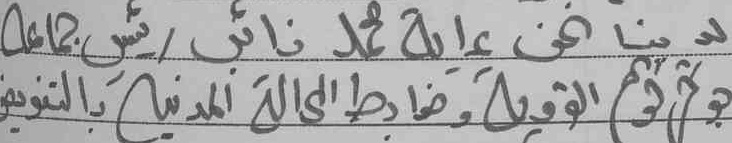 لدينا نحن عداية محمد نائب رئيس جماعة
القروية وضابط الحالة المدنية بالتفويض